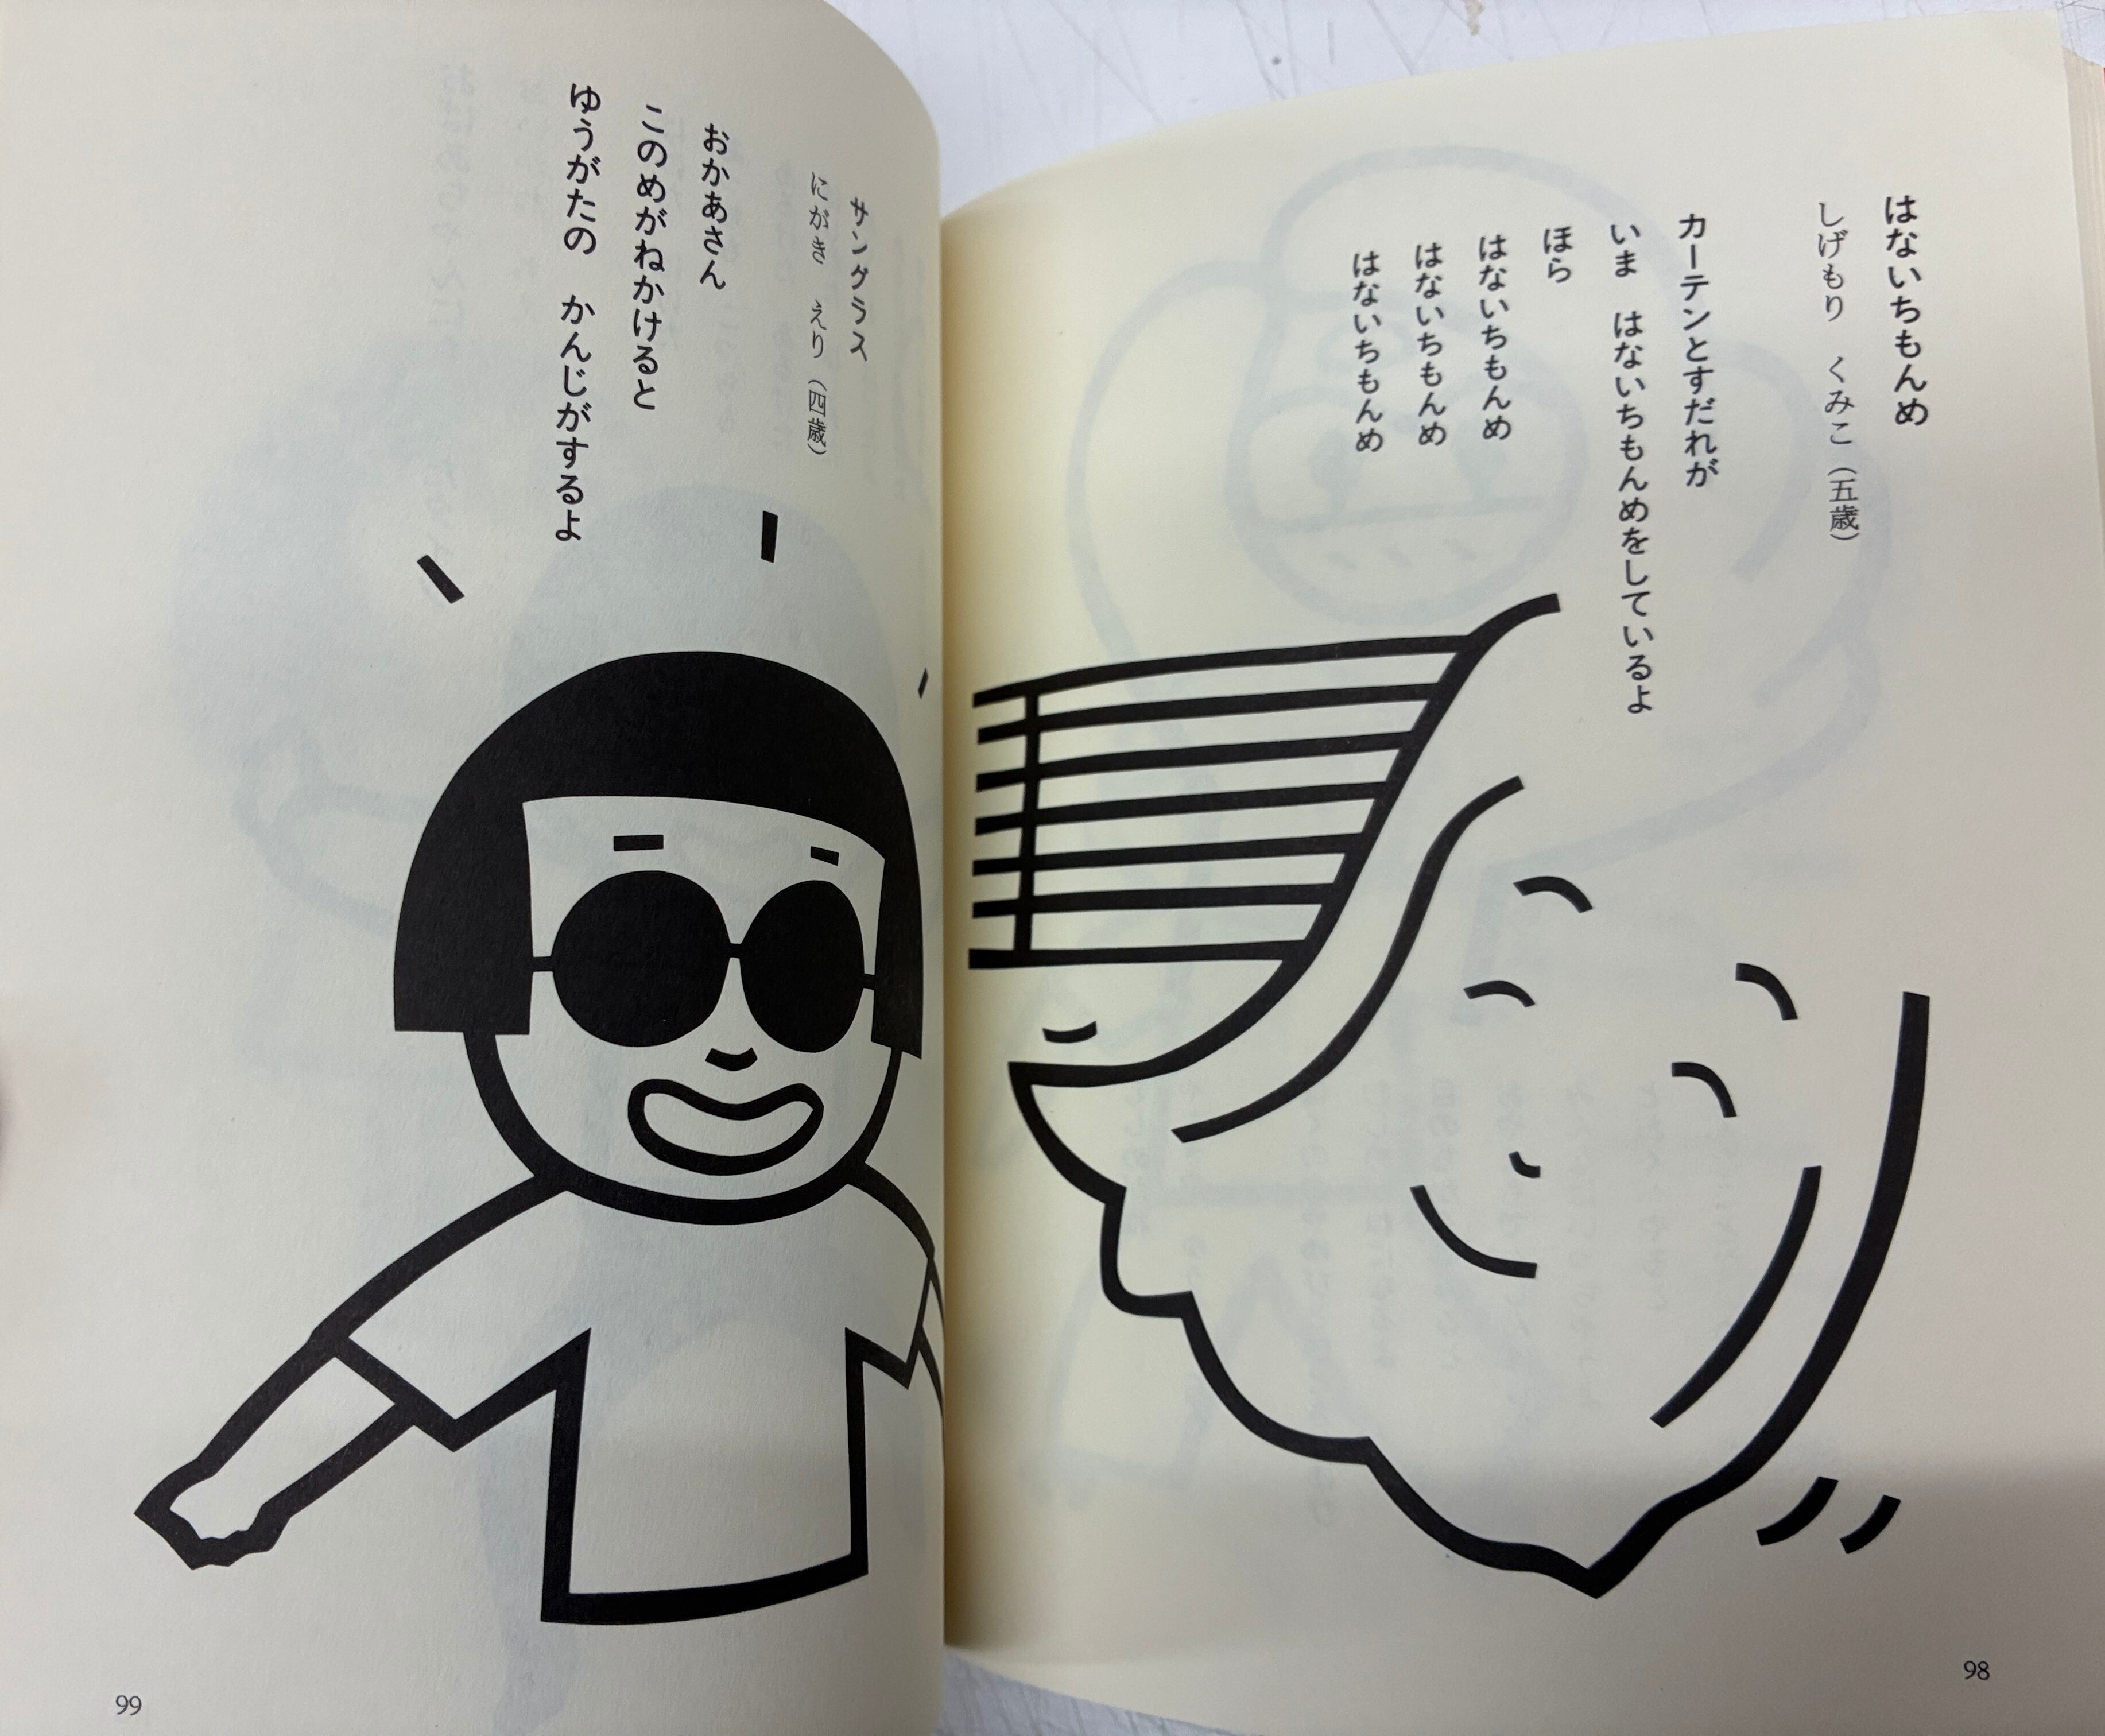 はないちもんめ
しげもり　くみこ（五歳）
カーテンとすだれが
いま　はないちもんめをしているよ
ほら
はないちもんめ
はないちもんめ
はないちもんめ
98
サングラス
にがき　えり（四歳）
おかあさん
このめがねかけると
ゆうがたの　かんじがするよ
99